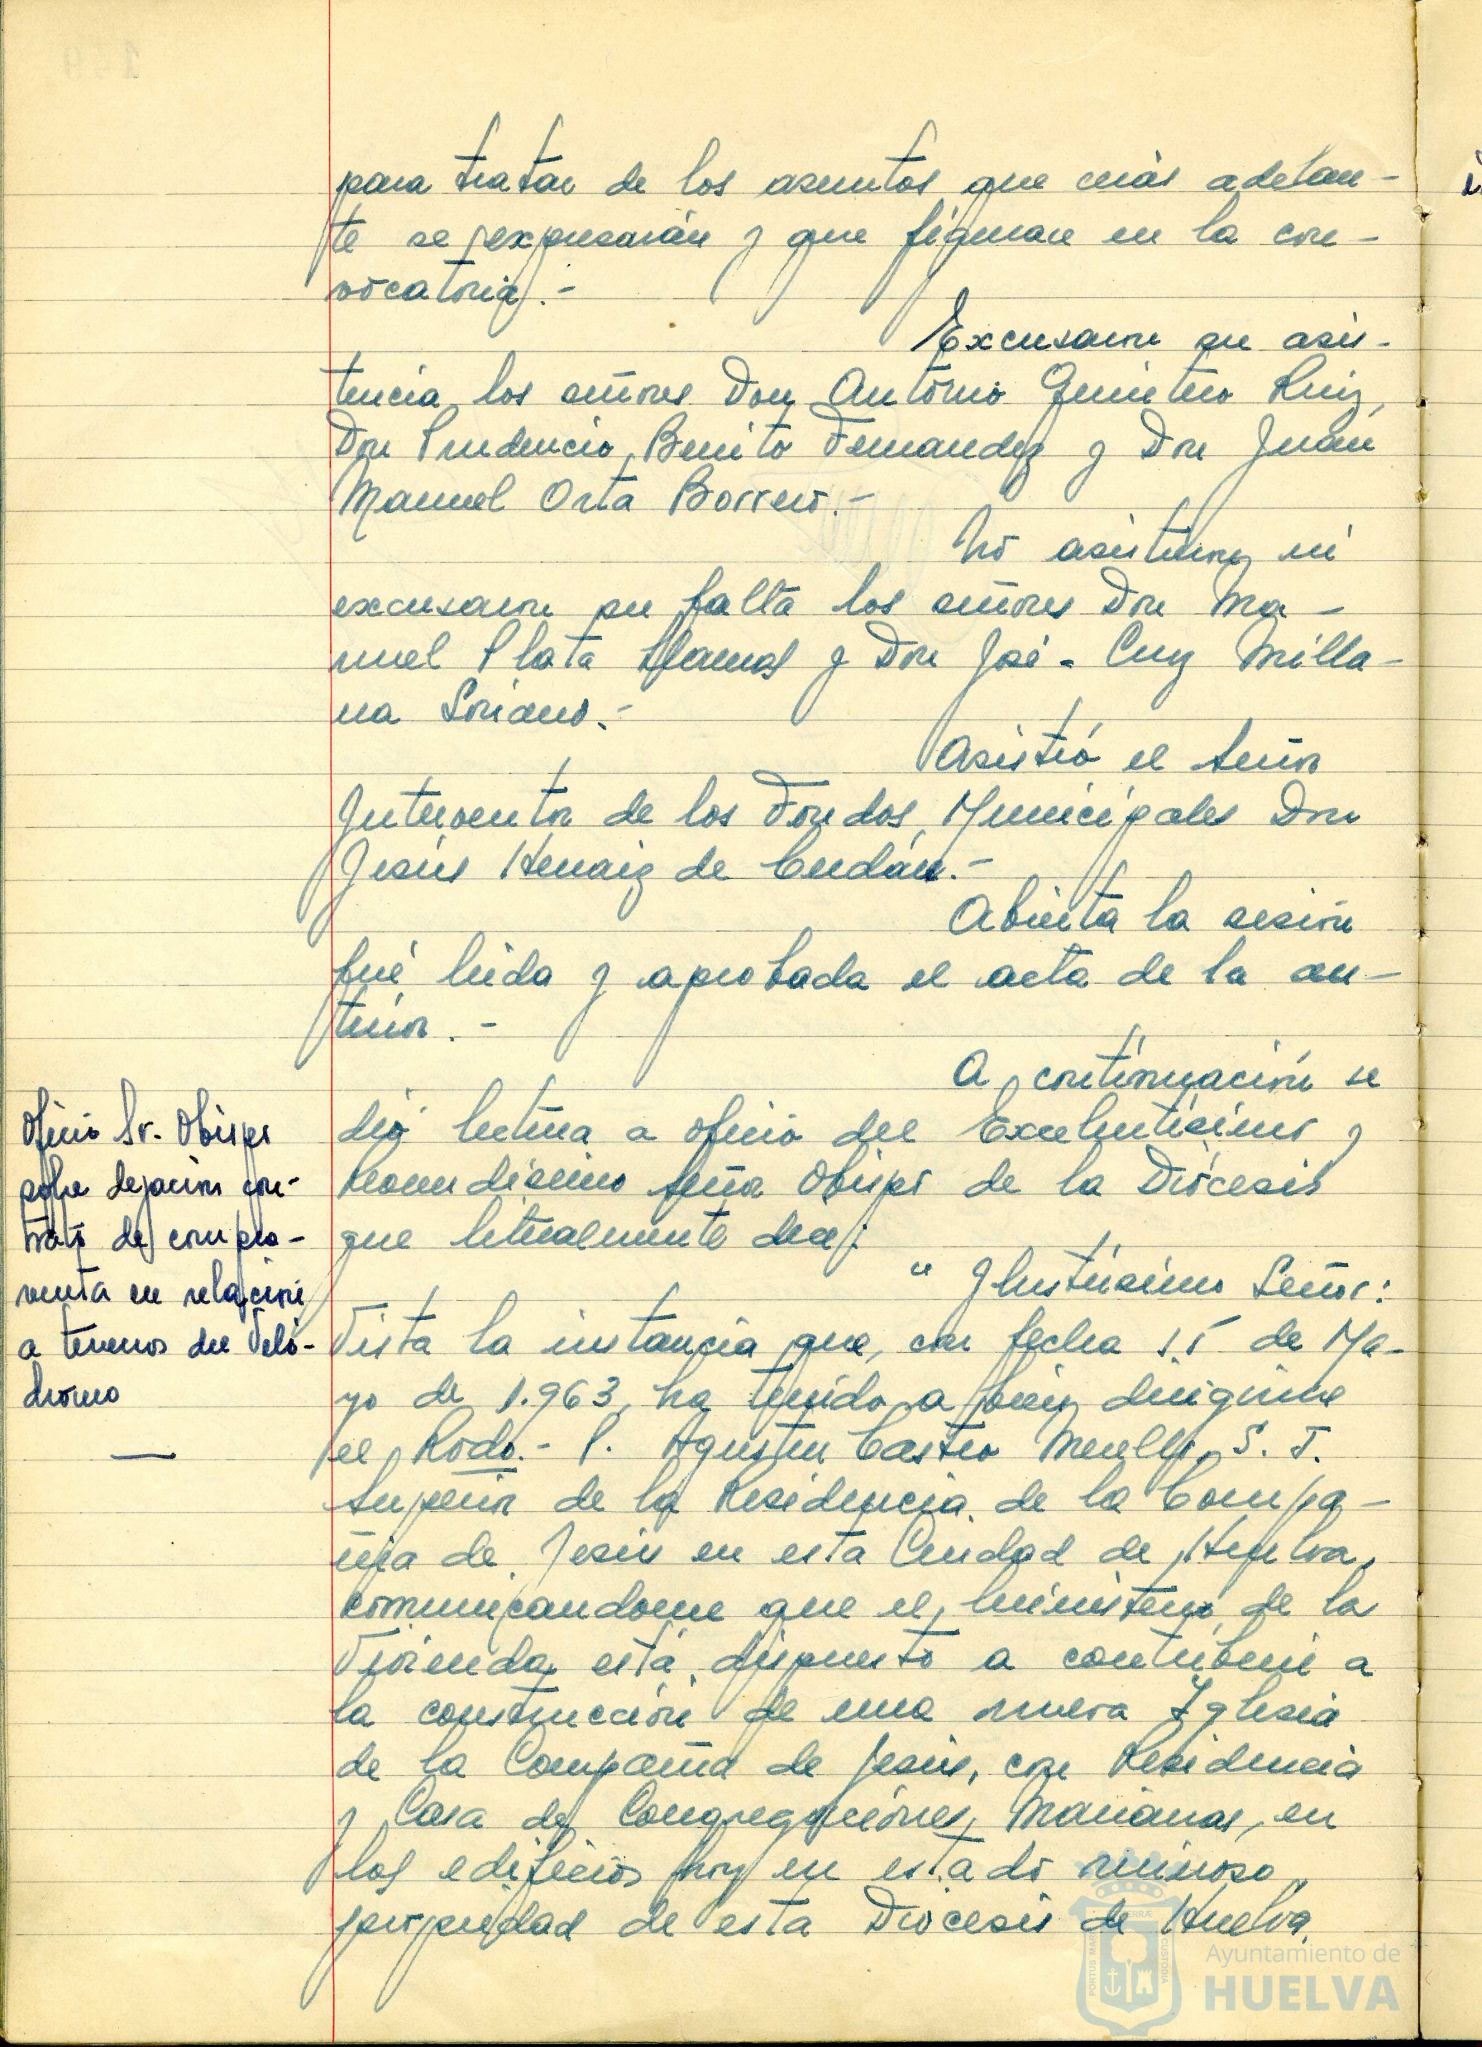 para tratar de los asuntos que más adelan-
te se expresarán y que figuran en la con-
vocatoria.-
Excusaron su asis-
tencia los señores Don Antonio Quintero Ruiz,
Don Prudencio Benito Fernandez y Don Juan
Manuel Orta Borrero.-
No asistieron ni
excusaron su falta los señores Don Ma-
nuel Plata Llamas y Don José-Cruz Milla-
na Soriano.-
Asistió el Señor
Interventor de los Fondos Municipales Don
Jesús Heraiz de
Abierta la sesión
fué leida y aprobada el acta de la an-
terior.-
A continuación se
dió lectura a oficio del Excelentísimo y
Reverendísimo Señor Obispo de la Diócesis
que literalmente dice:
Oficio Sr. Obispo
sobre dejacion con-
trato de compra-
venta en relación
a terrenos del Veló-
dromo
" Ilustrísimo Señor:
Vista la instancia que, con fecha 15 de Ma-
yo de 1.963, ha tenido a bien dirigirme
el Rvdo.- P. Agustin Castro S. J.
Superior de la Residencia de la Compa-
ñia de Jesús en esta Ciudad de Huelva,
comunicandome que el Ministerio de la
Vivienda está dispuesto a contribuir a
la construcción de una nueva Iglesia
de la Compañia de Jesús, con Residencia
y Casa de Congregaciones Marianas, en
los edificios hoy en estado ruinoso,
propiedad de esta Diócesis de Huelva.
PORTUS MARIS ET TERRAE CUSTODIA
Ayuntamiento de
HUELVA